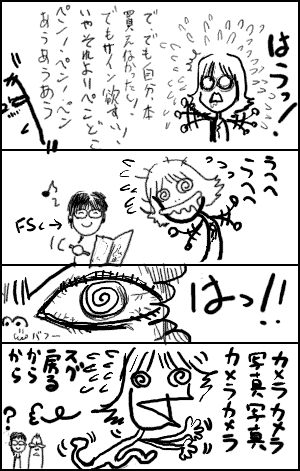 はうっ!
で でも自分本
買えなかったし、
でもサイン欲すぃ!
いやそれよりペンどこ
ペン!ペン!ペン
あうあうあう
うへへ
うへへ
FS
はっ!!
カメラカメラ
写真写真
カメラカメラ
スグ
戻る
から
から
?